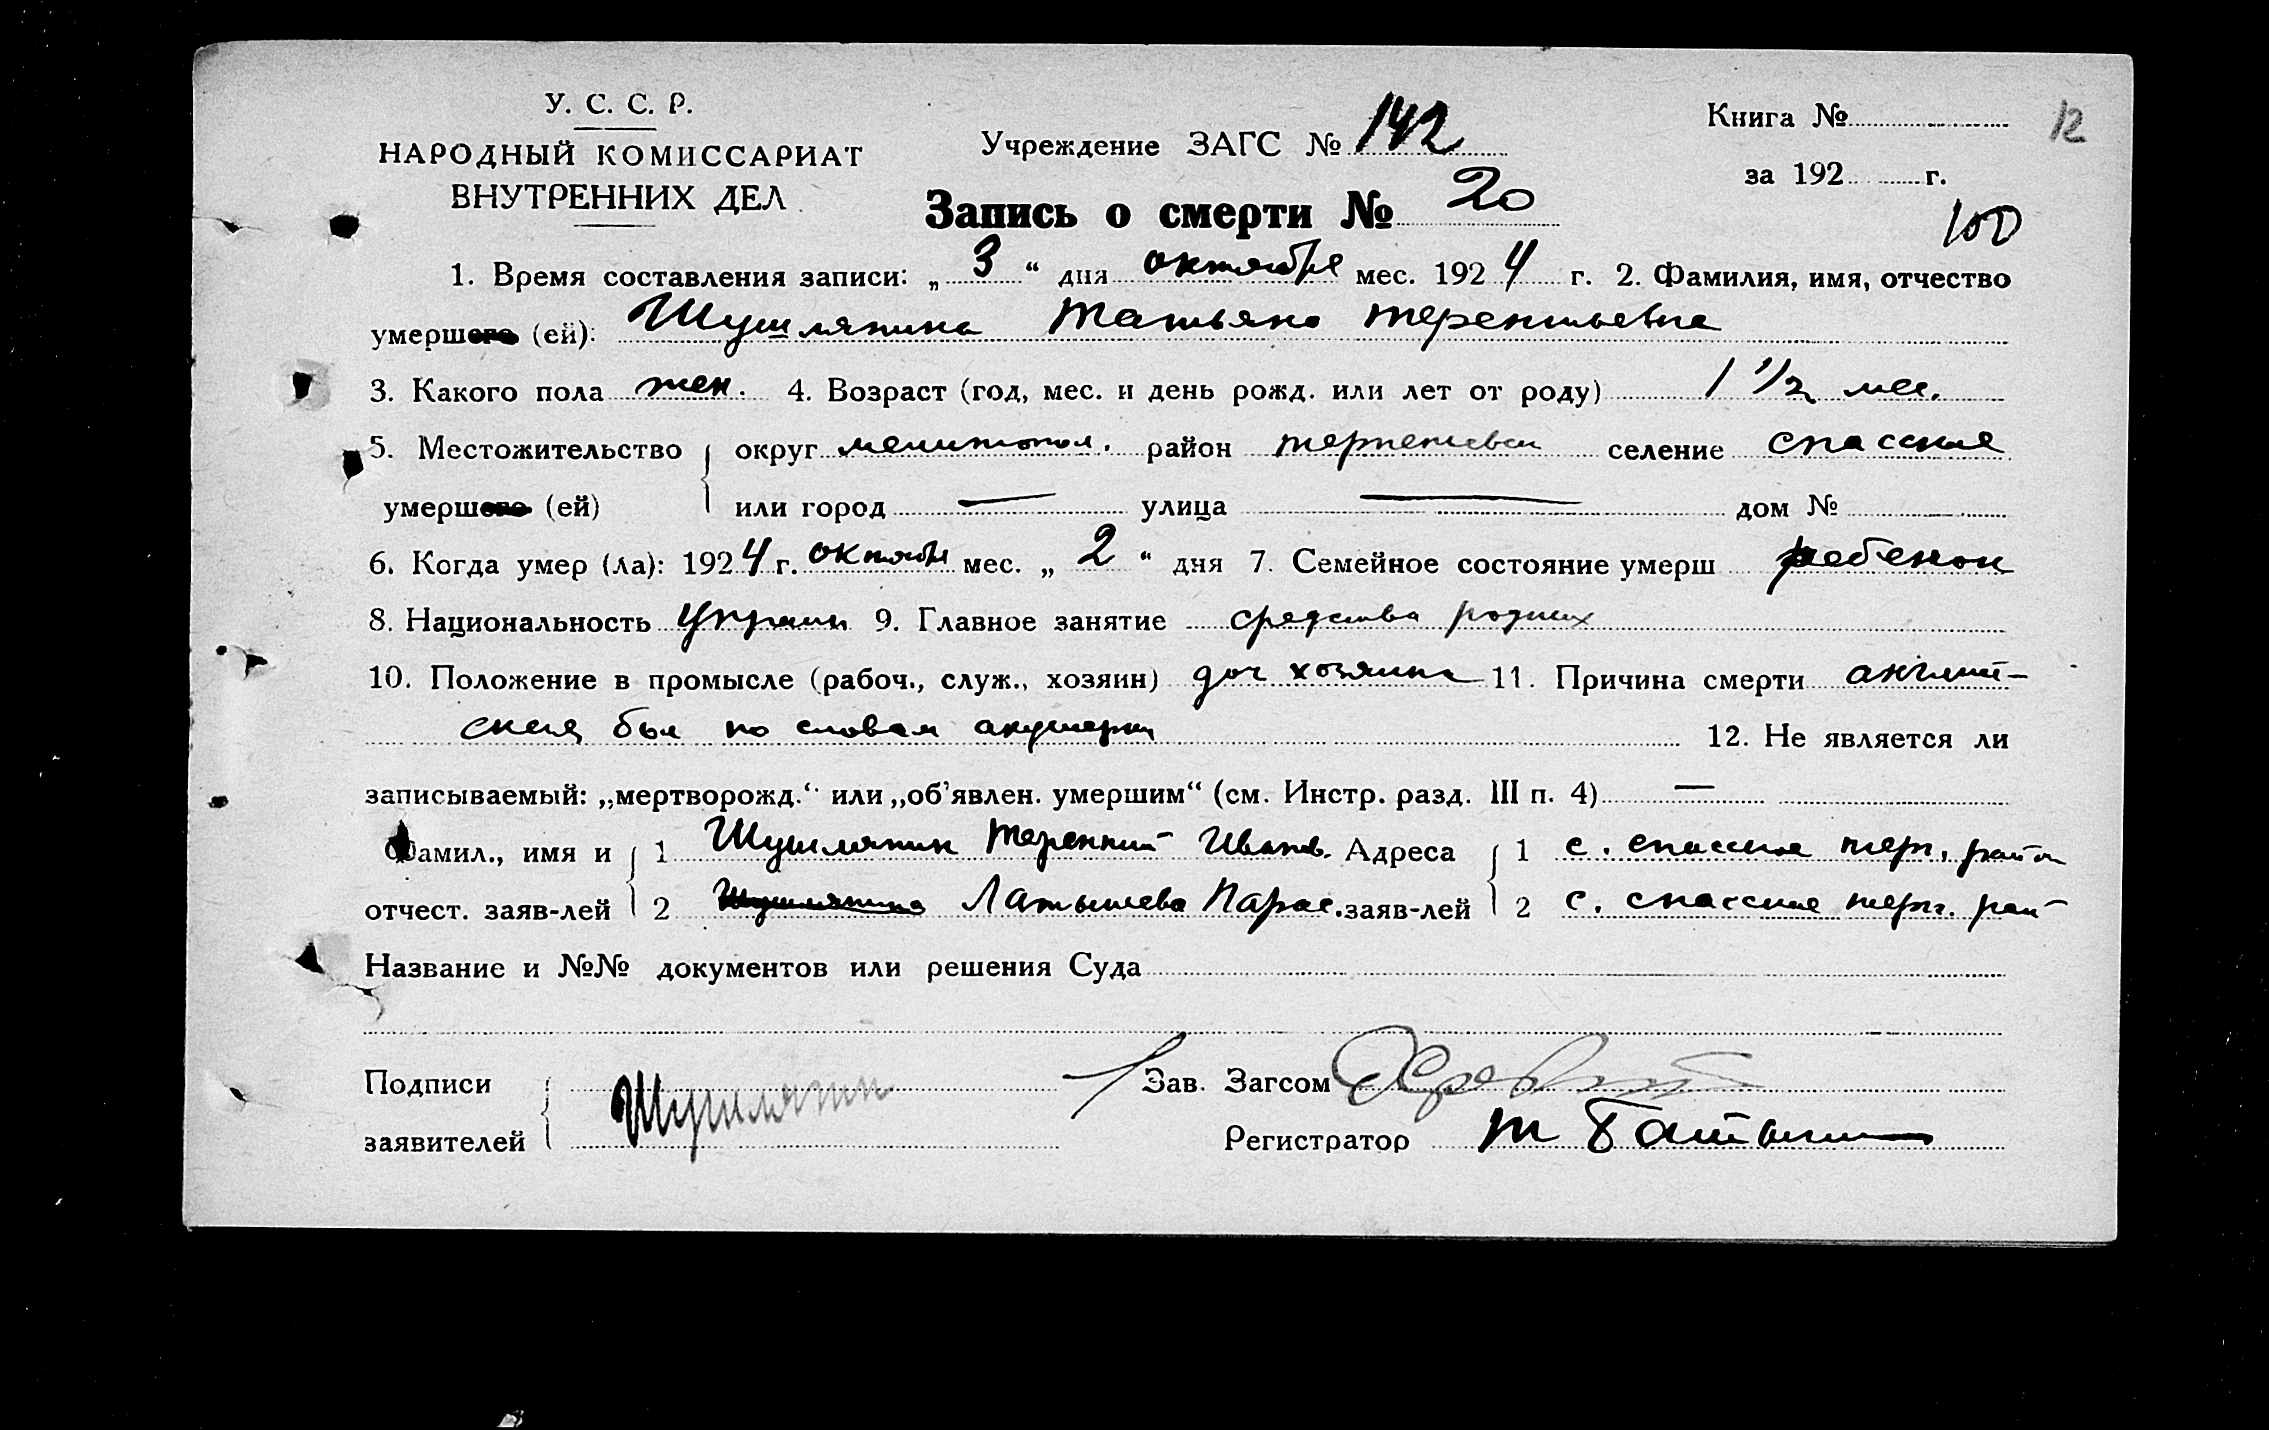 У. С. С. Р.
НАРОДНЫЙ КОМИССАРИАТ
ВНУТРЕННИХ ДЕЛ
Учреждение ЗАГС № 142
Книга №
12
за 192 г.
Запись о смерти № 20
100
1. Время составления записи: „ 3 “ дня октября мес. 1924 г. 2. Фамилия, имя, отчество
умершего (ей): Шушляпина Татьяна терентьевна
3. Какого пола жен. 4. Возраст (год, мес. и день рожд. или лет от роду) 1 1/2 мес.
5. Местожительство округ мелитопол. район терпеневск селение спасское
умершего (ей) или город — улица — дом №
6. Когда умер (ла): 1924 г. октября мес. „ 2 “ дня 7. Семейное состояние умерш ребенок
8. Национальность украин 9. Главное занятие средства родших
10. Положение в промысле (рабоч., служ., хозяин) доч хозяина 11. Причина смерти англий-
ская бол по словам акушерки 12. Не является ли
записываемый: „мертворожд.“ или „об’явлен. умершим“ (см. Инстр. разд. III п. 4) —
Фамил., имя и 1 Шушляпин Терентий Иванв. Адреса 1 с. спасское терп. район
отчест. заяв-лей 2 Шушляпина Латышева Парас. заяв-лей 2 с. спасское терп. рай
Название и №№ документов или решения Суда
Подписи Шушляпин Зав. Загсом
заявителей Регистратор